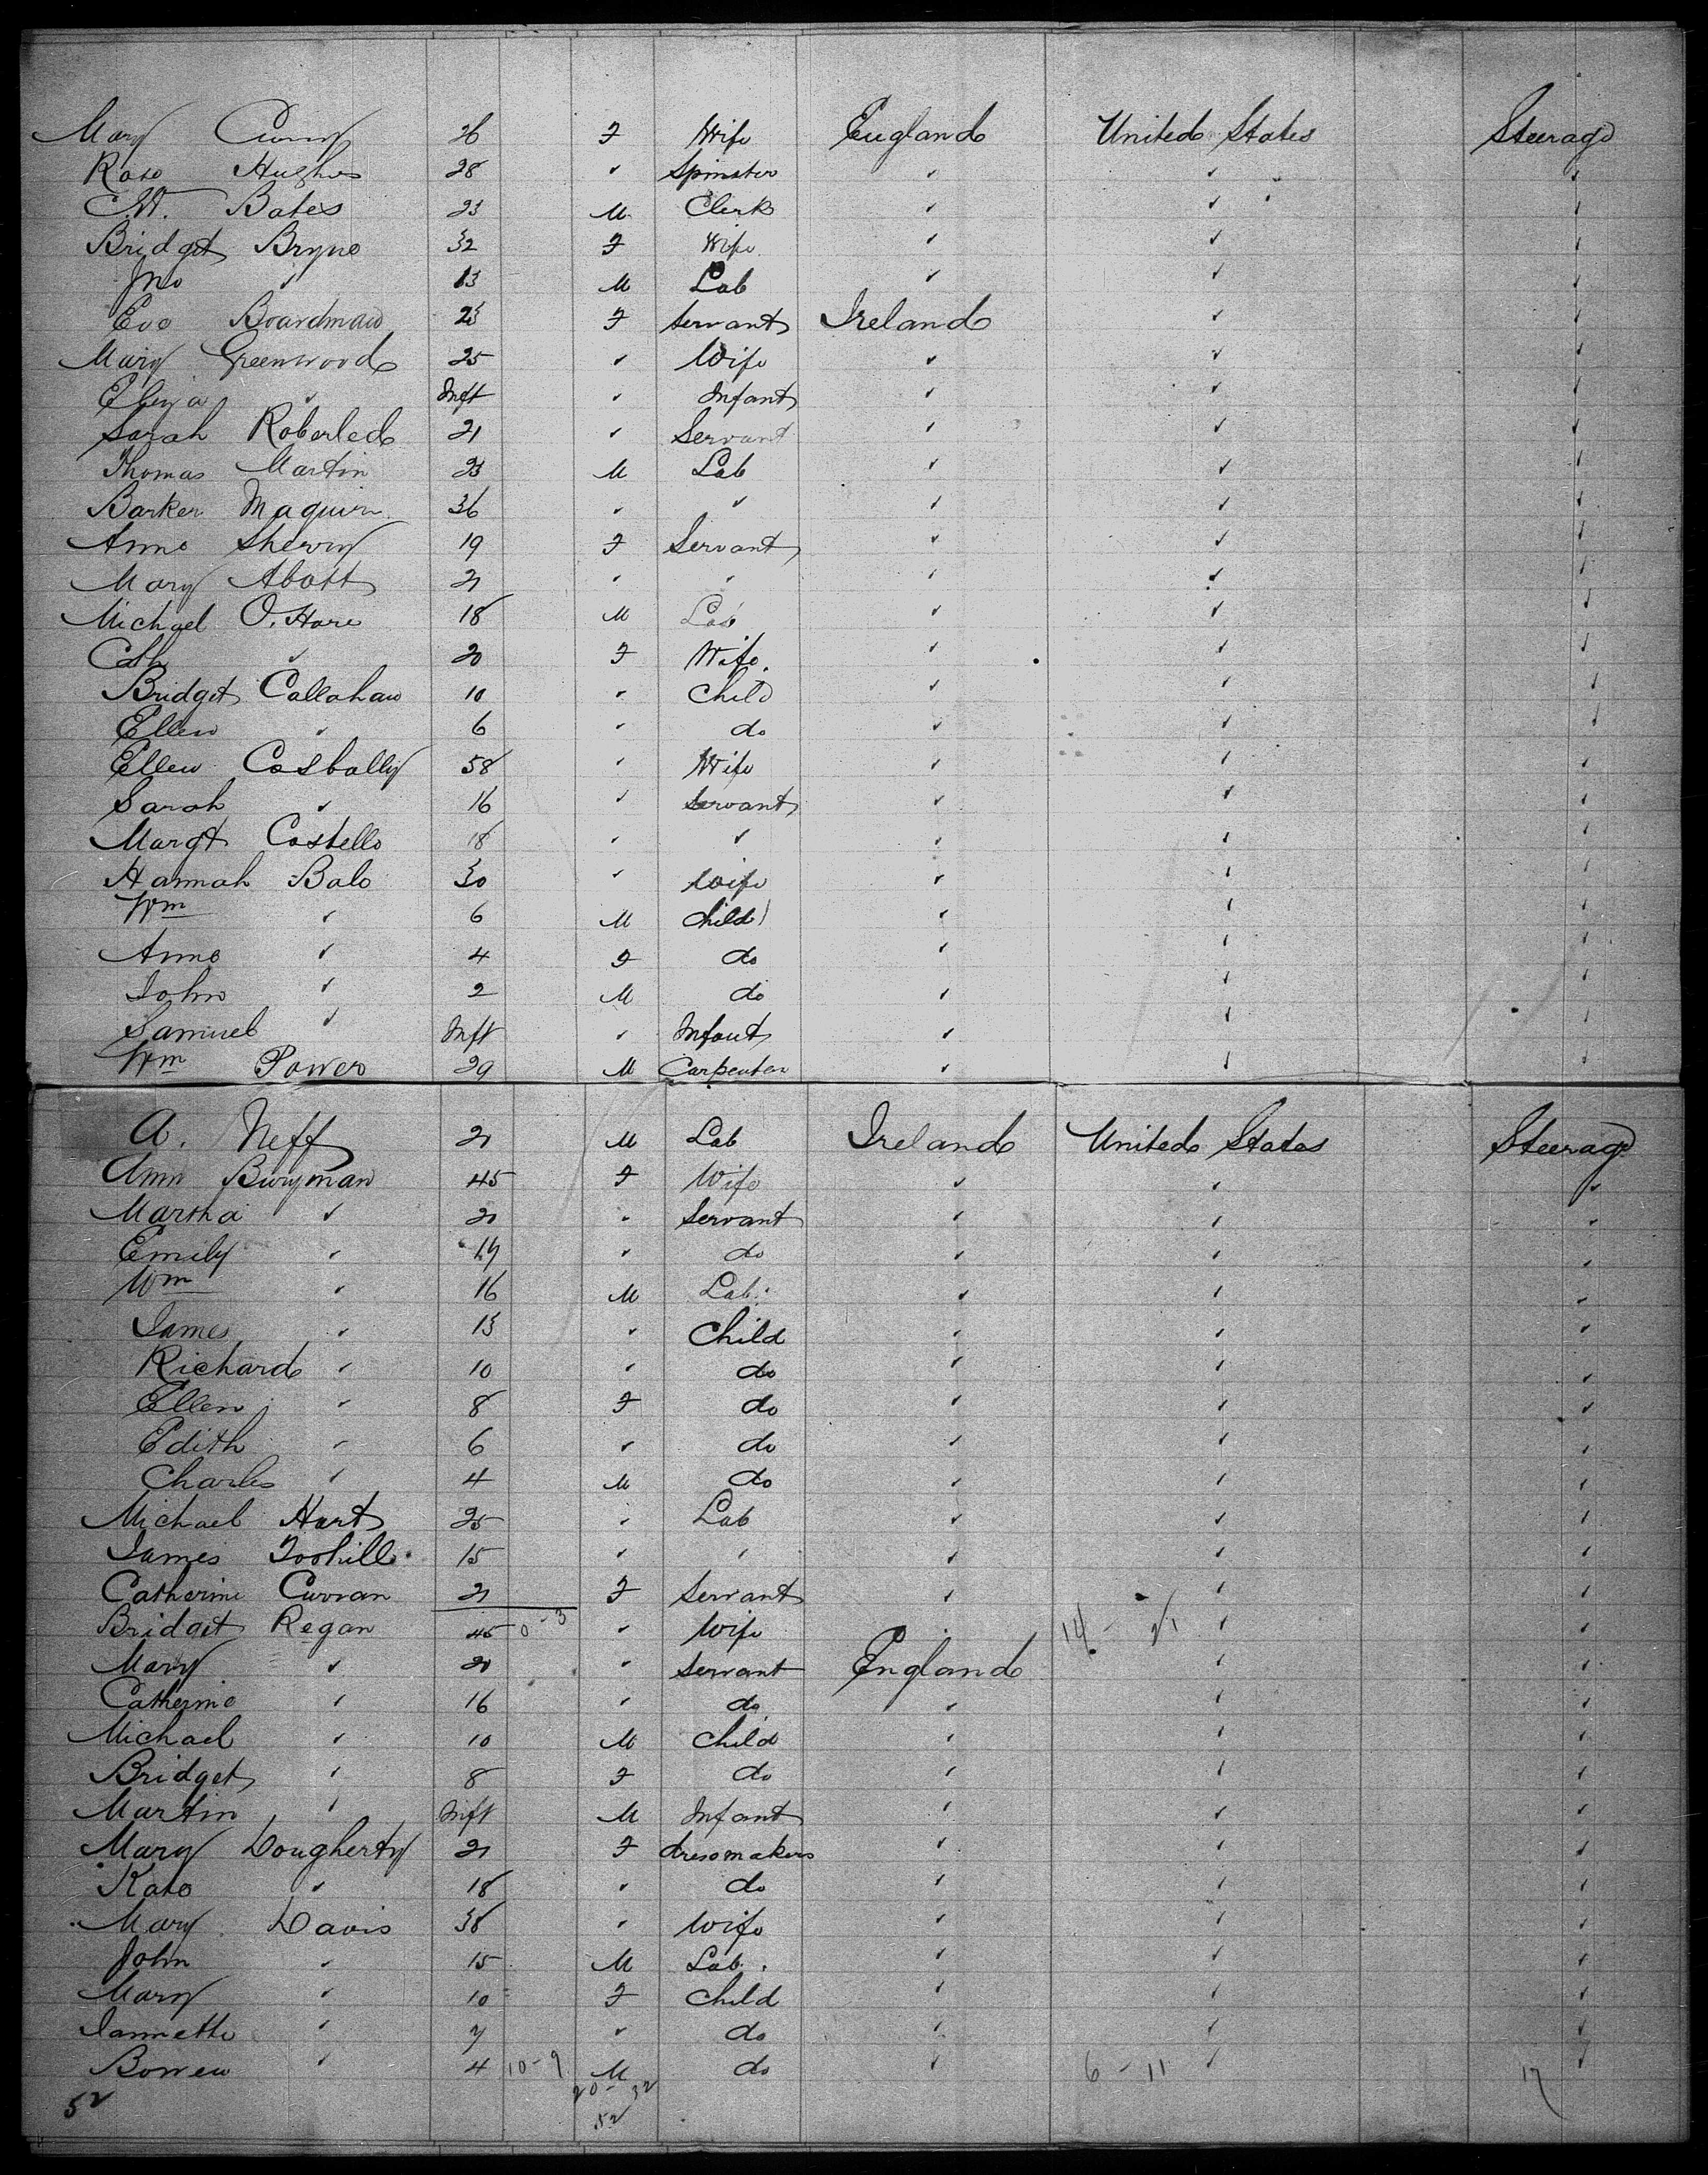 Mary 26 F Wife England United States Steerage
Kate Hughes 28 " Spinster " " "
Bates 23 M Clerk " " "
Bridget Bryne 32 F Wife " " "
Jno " 13 M Lab " " "
Eve Boardman 23 F Servant Ireland " "
Mary Greenwood 25 " Wife " " "
Eliza " Inft " Infant " " "
Sarah 21 " Servant " " "
Thomas Martin 23 M Lab " " "
Barker Maguire 36 " " " " "
Anne Sherry 19 F Servant " " "
Mary Abott 21 " " " " "
Michael O.Hare 18 M Lab " " "
Cath " 20 F Wife " " "
Bridget Callahan 10 " Child " " "
Ellen " 6 " do " " "
Ellen 58 " Wife " " "
Sarah " 16 " Servant " " "
Margt Costello 18 " " " " "
Hannah Bale 30 " Wife " " "
Wm " 6 M Child " " "
Anne " 4 F do " " "
John " 2 M do " " "
Samuel " Inft " Infant " " "
Wm Power 29 M Carpenter " " "
A. Neff 21 M Lab Ireland United States Steerage
Ann 45 F Wife " " "
Martha " 20 " Servant " " "
Emily " 19 " do " " "
Wm " 16 M Lab. " " "
James " 13 " Child " " "
Richard " 10 " do " " "
Ellen " 8 F do " " "
Edith " 6 " do " " "
Charles " 4 M do " " "
Michael Hart 25 " Lab " " "
James Toohill 15 " " " " "
Catherine Curran 21 F Servant " " "
Bridget Regan 45 0-3 " Wife " 14 - 21 " "
Mary " 20 " Servant England " "
Catherine " 16 " do " " "
Michael " 10 M Child " " "
Bridget " 8 F do " " "
Martin " Inft M Infant " " "
Mary Dougherty 21 F dressmakers " " "
Kate " 18 " do " " "
Mary Davis 38 " Wife " " "
John " 15 M Lab. " " "
Mary " 10 F Child " " "
Jannette " 7 " do " " "
Bowen " 4 10-9 M do " 6 - 11 " " 17
52 20 - 32
52